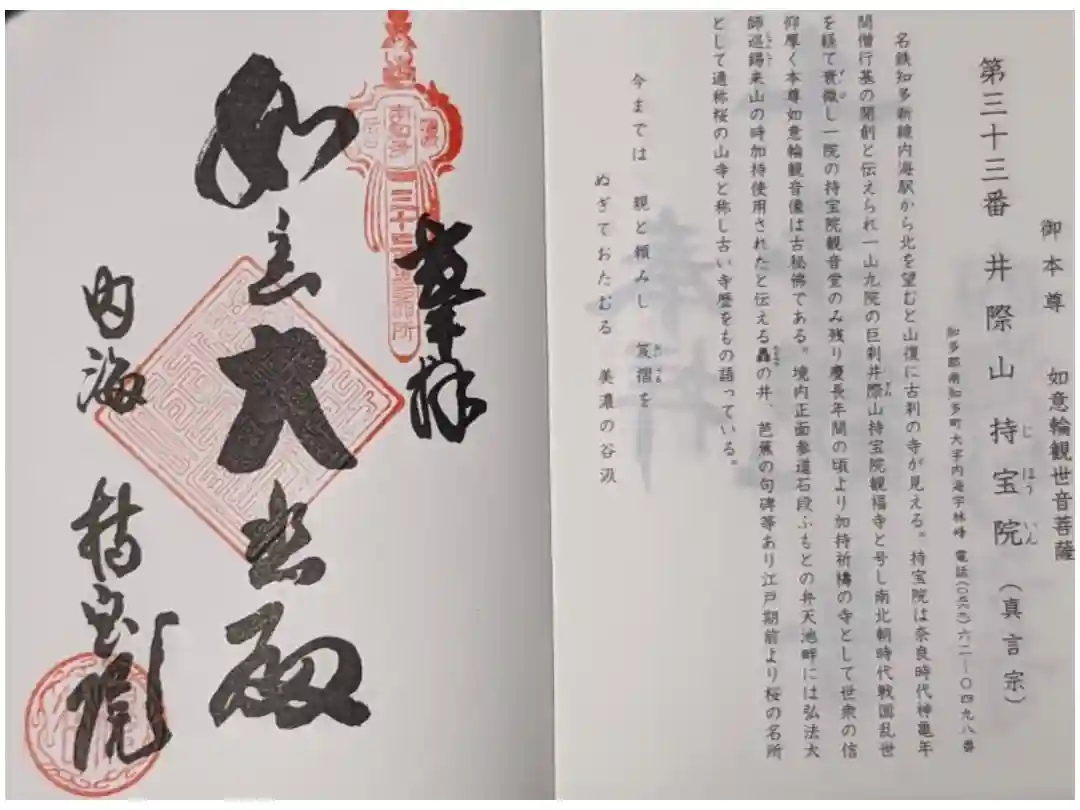 御本尊 如意輪観世音菩薩
第三十三番 井際山 持宝院(真言宗)
じほういん
知多郡南知多町大字内海字林峰 電話(〇五六九)六二―〇四九八番
名鉄知多新線内海駅から北を望むと山復に古刹の寺が見える。持宝院は奈良時代神亀年
間僧行基の開創と伝えられ一山九院の巨刹井際山持宝院観福寺と号し南北朝時代戦国乱世
を経て衰微し一院の持宝院観音堂のみ残り慶長年間の頃より加持祈禱の寺として世衆の信
仰厚く本尊如意輪観音像は古秘佛である。境内正面参道石段ふもとの弁天池畔には弘法大
師巡錫来山の時加持使用されたと伝える轟の井、芭蕉の句碑等あり江戸期前より桜の名所
として通称桜の山寺と称し古い寺歴をもの語っている。
今までは 親と頼みし 笈摺を
ぬぎておたむる 美濃の谷汲
奉拝
三十三
所
内海 持宝院